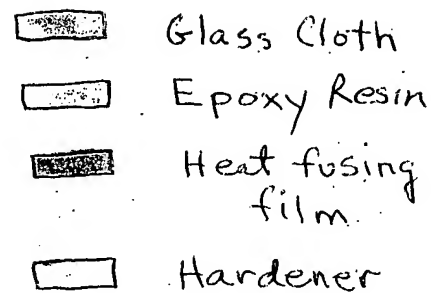 Glass Cloth
Epoxy Resin
Heat fusing
film
Hardener